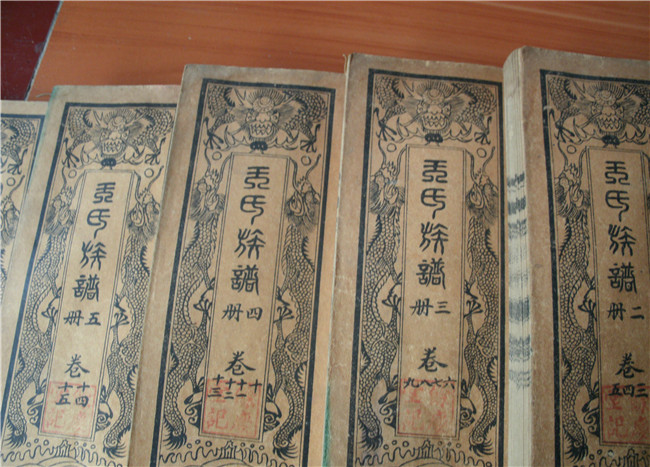 王氏族譜
五册
卷
十四
十五
王氏族譜
四册
卷
十
十一
十二
十三
王氏族譜
三册
卷
六七八九
王氏族譜
二册
卷
三四五